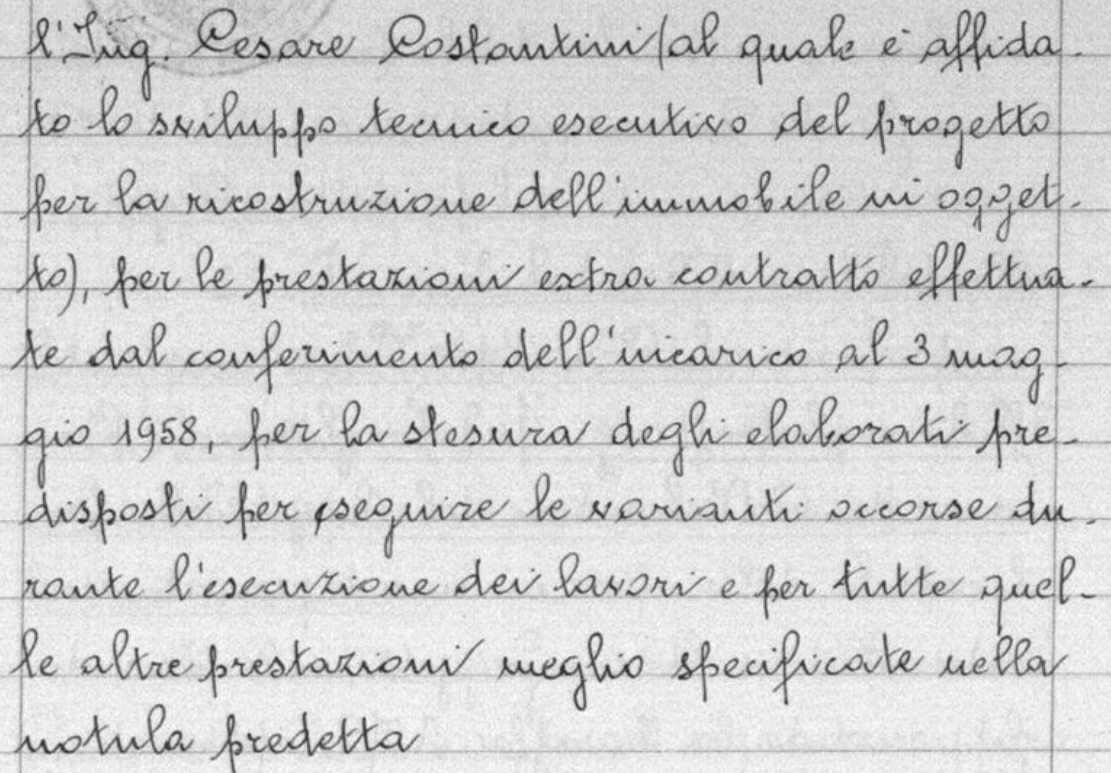 l'Ing. Cesare Costantini (al quale è affida-
to lo sviluppo tecnico esecutivo del progetto
per la ricostruzione dell'immobile in ogget-
to), per le prestazioni extra contratto effettua-
te dal conferimento dell'incarico al 3 mag-
gio 1958, per la stesura degli elaborati pre-
disposti per eseguire le varianti occorse du-
rante l'esecuzione dei lavori e per tutte quel-
le altre prestazioni meglio specificate nella
notula predetta